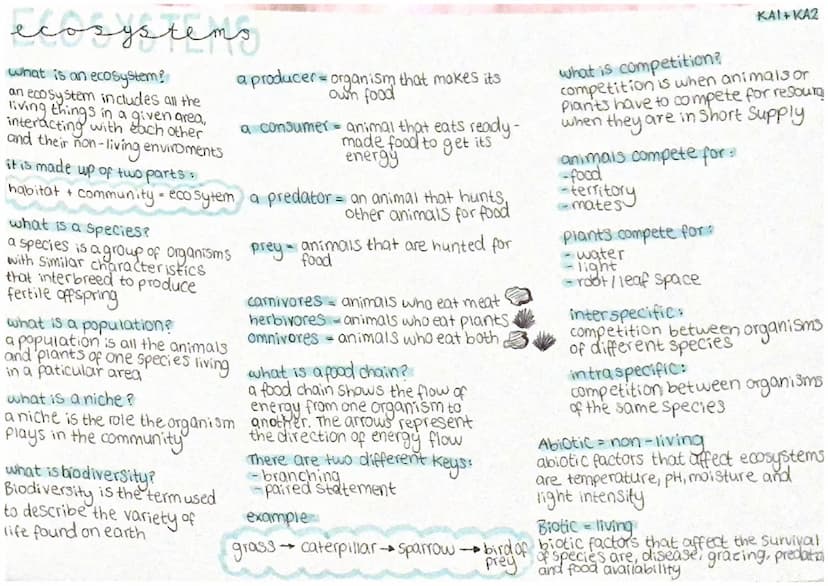 ecosystems
KA1+KA2
what is an ecosystem?
an ecosystem includes all the
living things in a given area,
interacting with each other
and their non-living enviroments
it is made up of two parts:
habitat + community = ecosytem
what is a species?
a species is a group of organisms
with similar characteristics
that interbreed to produce
fertile offspring
what is a population?
a population is all the animals
and plants of one species living
in a paticular area
what is a niche?
a niche is the role the organism
plays in the community
what is biodiversity?
Biodiversity is the term used
to describe the variety of
life found on earth
a producer = organism that makes its
own food
a consumer = animal that eats ready-
made food to get its
energy
a predator = an animal that hunts
other animals for food
prey = animals that are hunted for
food
carnivores = animals who eat meat
herbivores = animals who eat plants
omnivores = animals who eat both
what is a food chain?
a food chain shows the flow of
energy from one organism to
another. The arrows represent
the direction of energy flow
There are two different keys:
- branching
- paired statement
example
grass → caterpillar → sparrow → bird of
prey
what is competition?
competition is when animals or
plants have to compete for resourc
when they are in short supply
animals compete for:
- food
- territory
- mates
plants compete for:
- water
- light
- root/leaf space
interspecific:
competition between organisms
of different species
intraspecific:
competition between organisms
of the same species
Abiotic = non-living
abiotic factors that affect ecosystems
are temperature, pH, moisture and
light intensity
Biotic = living
biotic factors that affect the survival
of species are, disease, grazing, predatio
and food availability